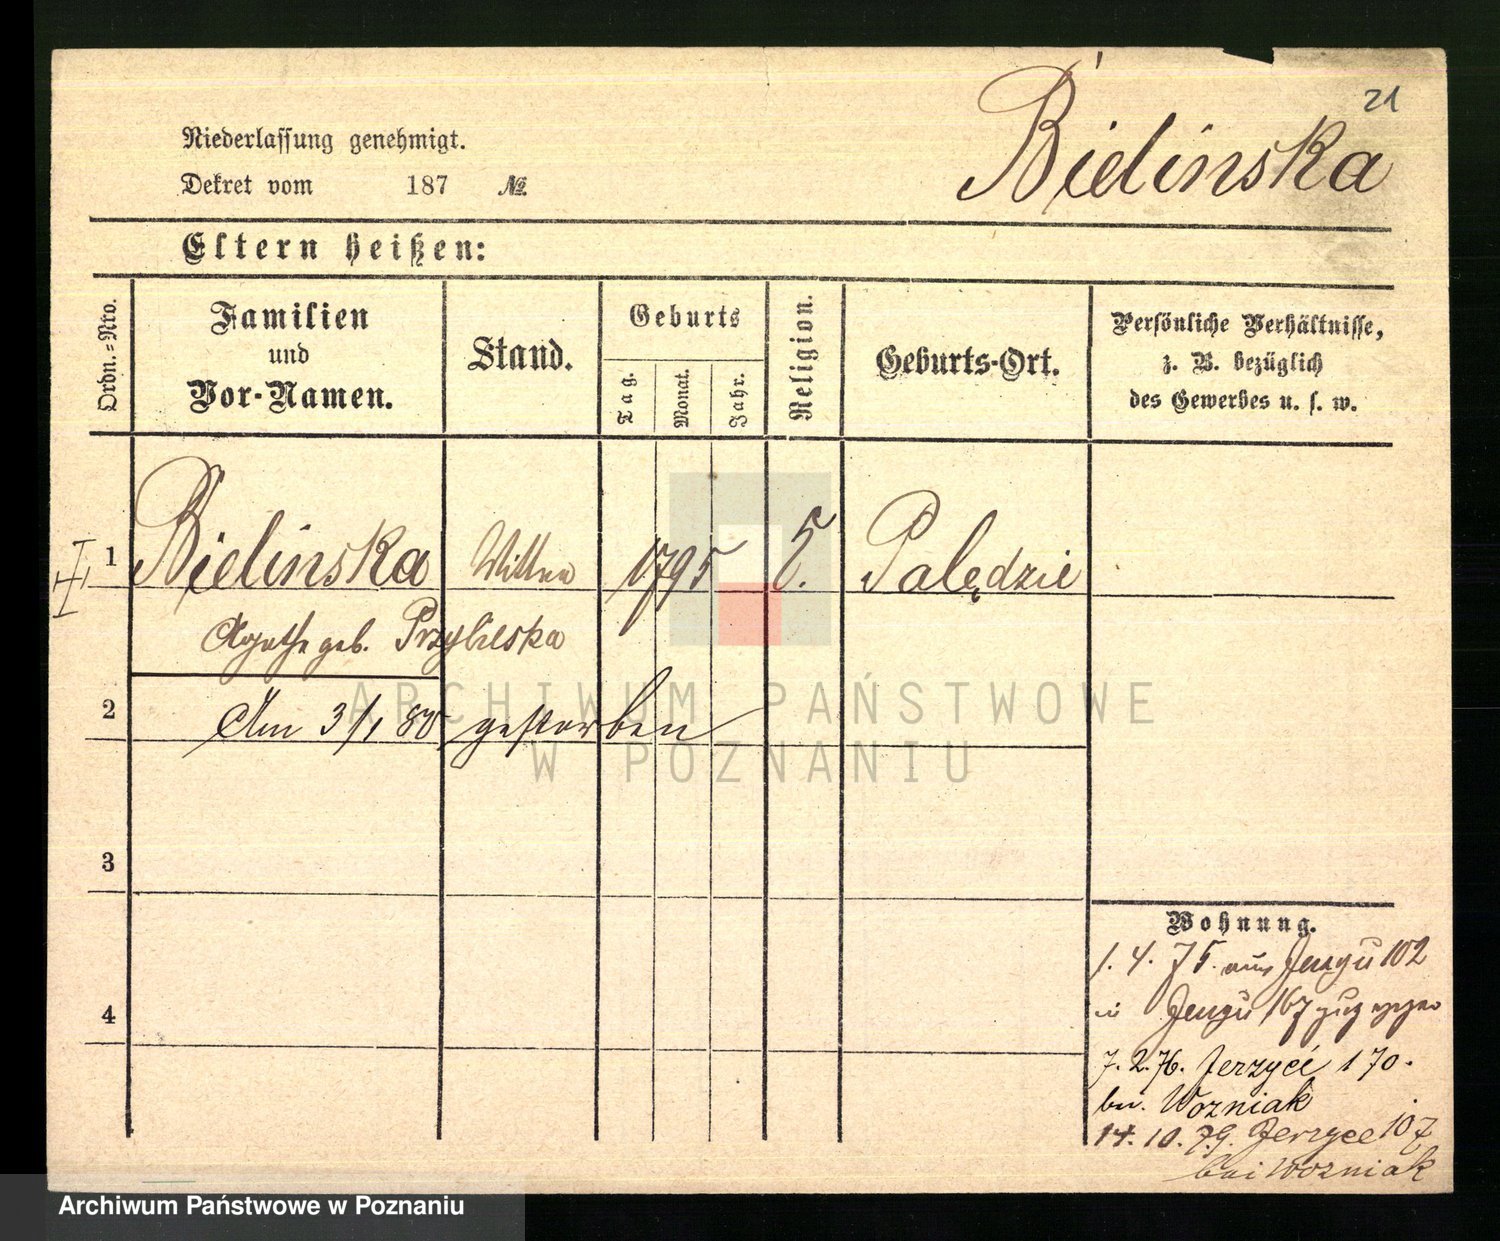 21
Bielinska
Niederlassung genehmigt.
Dekret vom 187 №
Eltern heißen:
Ordn.-Nro.
Familien und Vor-Namen.
Stand.
Geburts
Tag. Monat. Jahr.
Religion.
Geburts-Ort.
Persönliche Verhältnisse,
z. B. bezüglich
des Gewerbes u. s. w.
1 Bielinska Wittwe 1795 Palędzie
Agathe geb. Przybilska
2 Am 3/1 80 gestorben
3
4
Wohnung.
1. 4. 75. aus 102
in 167
7. 2. 76. Jerzyce 170.
bei Wozniak
14. 10. 79. Jerzyce 107
bei Wozniak
ARCHIWUM PAŃSTWOWE
W POZNANIU
Archiwum Państwowe w Poznaniu